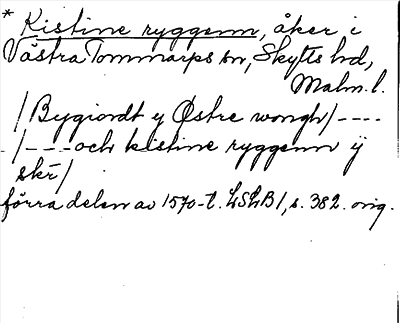 * Kistine ryggenn, åker i
Västra Tommarps sn, Skytts hd,
Malm. l.
/Bygiordt y Østre wongh/----
/---och kistine ryggenn ÿ
skr/
förra delen av 1570-t. LSLB1, s. 382. orig.